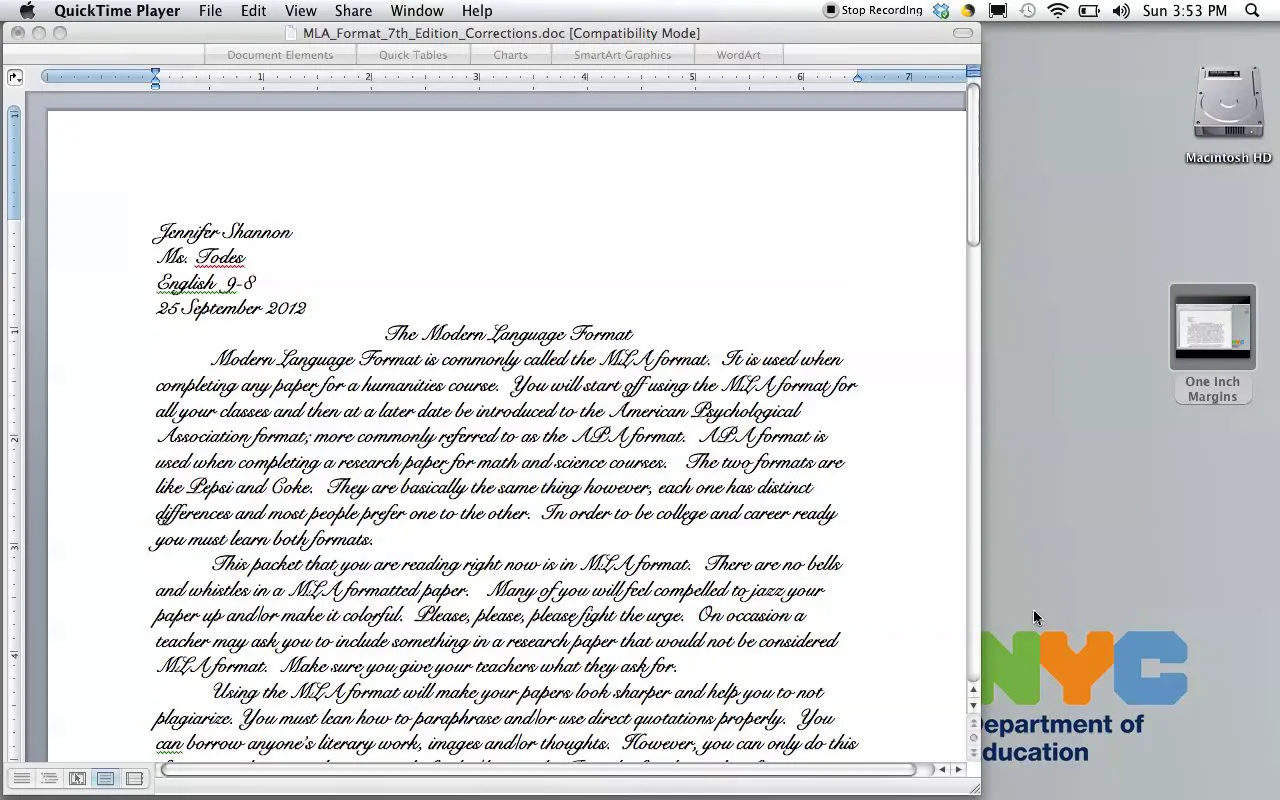 QuickTime Player File Edit View Share Window Help Stop Recording Sun 3:53 PM
MLA_Format_7th_Edition_Corrections.doc [Compatibility Mode]
Document Elements Quick Tables Charts SmartArt Graphics WordArt
1 2 3 4 5 6 7
Jennifer Shannon
Ms. Todes
English 9-8
25 September 2012
The Modern Language Format
Modern Language Format is commonly called the MLA format. It is used when
completing any paper for a humanities course. You will start off using the MLA format for
all your classes and then at a later date be introduced to the American Psychological
Association format; more commonly referred to as the APA format. APA format is
used when completing a research paper for math and science courses. The two formats are
like Pepsi and Coke. They are basically the same thing however, each one has distinct
differences and most people prefer one to the other. In order to be college and career ready
you must learn both formats.
This packet that you are reading right now is in MLA format. There are no bells
and whistles in a MLA formatted paper. Many of you will feel compelled to jazz your
paper up and/or make it colorful. Please, please, please fight the urge. On occasion a
teacher may ask you to include something in a research paper that would not be considered
MLA format. Make sure you give your teachers what they ask for.
Using the MLA format will make your papers look sharper and help you to not
plagiarize. You must lean how to paraphrase and/or use direct quotations properly. You
can borrow anyone's literary work, images and/or thoughts. However, you can only do this
Macintosh HD
One Inch
Margins
NYC
Department of
ducation